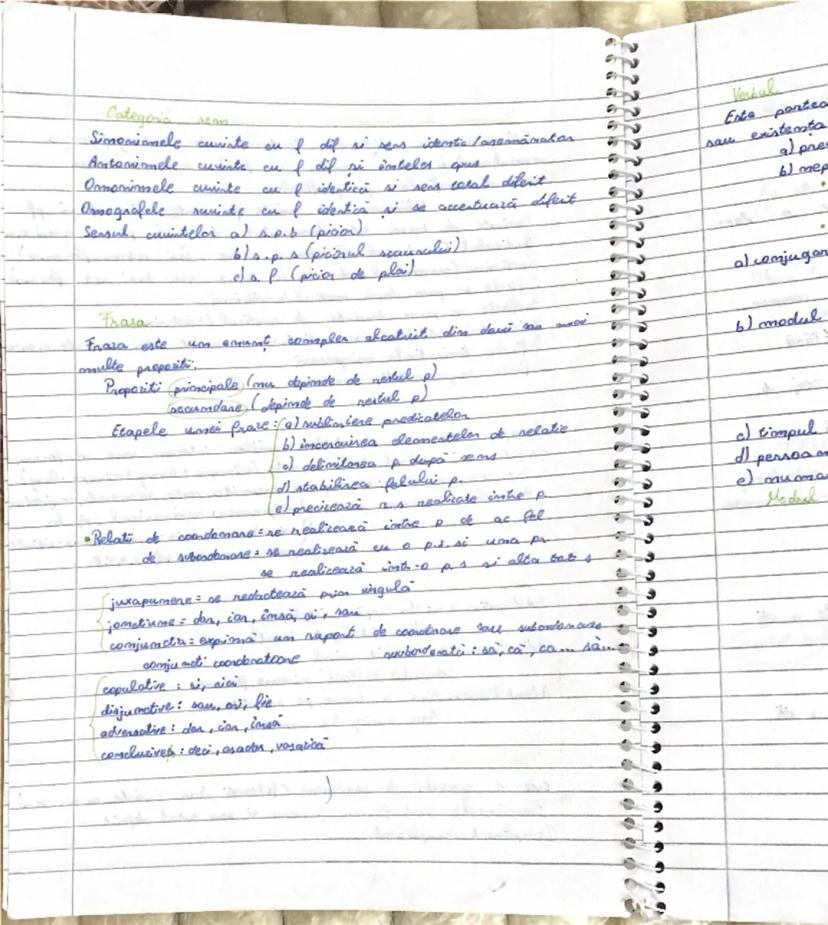 Categorii sem
Sinonimele cuvinte cu f dif si sens identic/asemănător
Antonimele cuvinte cu f dif și înteles opus
Omonimele cuvinte cu f identică si sens total diferit
Omografele cuvinte cu f identica și se accentuază diferit
Sensul cuvintelor a) s.p.b (picior)
b) s.p.s (piciorul scaunului)
c) s.f (picior de plai)
Fraza
Fraza este un enunț complex alcatuit din două sau mai
multe propoziti.
Propoziti principale (nu depinde de restul p)
secundare (depinde de restul p)
Etapele unei fraze: a) subliniere predicatelor
b) incercuirea elementelor de relatie
c) delimitarea p. după sens
d) stabilirea felului p.
e) precizează r.s realizate intre p.
• Relati de coordonare = se realizează intre p de ac fel
de subordonare = se realizează cu o p.s. si una pr.
se realizează intr-o p.s si alta tot s
juxapunere = se redactează prin virgulă
joncțiune = dar, iar, însă, ci, sau
conjunctia = exprimă un raport de coordonare sau subordonare
conjuncti coordonatoare subbordonată: să, că, ca... să...
copulative: si, nici
disjunctive: sau, ori, fie
adversative: dar, iar, însă
concluzive: deci, asadar,
Verbul
Este partea
sau existenta
a) pre
b) nep
a) conjugar
b) modul
c) timpul
d) persoan
e) numar
Modul